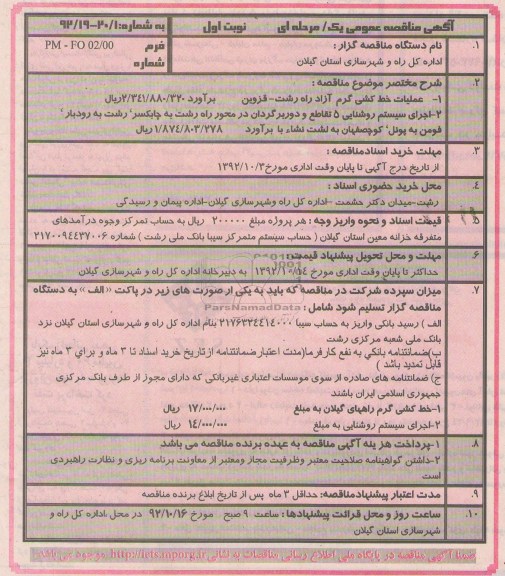 آگهی مناقصه عمومی یک/ مرحله ای نوبت اول به شماره: ۲۰/۱-۹۲/۱۹
۱. نام دستگاه مناقصه گزار :
اداره کل راه و شهرسازی استان گیلان
فرم PM - FO 02/00
شماره
۲. شرح مختصر موضوع مناقصه :
۱- عملیات خط کشی گرم آزاد راه رشت- قزوین برآورد ۲/۳۴۱/۸۸۰/۳۲۰ریال
۲-اجرای سیستم روشنایی ۵ تقاطع و دوربرگردان در محور راه رشت به چابکسر٬ رشت به رودبار ٬
فومن به پونل٬ کوچصفهان به لشت نشاء با برآورد ۱/۸۷۴/۸۰۳/۲۷۸ ریال
۳. مهلت خرید اسنادمناقصه :
از تاریخ درج آگهی تا پایان وقت اداری مورخ۱۳۹۲/۱۰/۳
۴. محل خرید حضوری اسناد :
رشت-میدان دکتر حشمت -اداره کل راه وشهرسازی گیلان-اداره پیمان و رسیدگی
۵. قیمت اسناد و نحوه واریز وجه : هر پروژه مبلغ ۲۰۰۰۰۰ ریال به حساب تمرکز وجوه درآمدهای
متفرقه خزانه معین استان گیلان ( حساب سیستم متمرکز سیبا بانک ملی رشت ) شماره ۲۱۷۰۰۹۴۴۳۷۰۰۶
۶. مهلت و محل تحویل پیشنهاد قیمت :
حداکثر تا پایان وقت اداری مورخ ۱۳۹۲/۱۰/۱۴ به دبیرخانه اداره کل راه و شهرسازی گیلان
ParsNamadData
۷. میزان سپرده شرکت در مناقصه که باید به یکی از صورت های زیر در پاکت «الف» به دستگاه
مناقصه گزار تسلیم شود شامل :
الف ) رسید بانکی واریز به حساب سیبا ۲۱۷۶۳۲۴۴۱۴۰۰۰ بنام اداره کل راه و شهرسازی استان گیلان نزد
بانک ملی شعبه مرکزی رشت
ب)ضمانتنامه بانکي به نفع کارفرما(مدت اعتبار ضمانتنامه از تاريخ خريد اسناد تا ۳ ماه و براي ۳ ماه نيز
قابل تمديد باشد )
ج) ضمانتنامه های صادره از سوی موسسات اعتباری غیربانکی که دارای مجوز از طرف بانک مرکزی
جمهوری اسلامی ایران باشند
۱-خط کشی گرم راههای گیلان به مبلغ ۱۷/۰۰۰/۰۰۰ ریال
۲-اجرای سیستم روشنایی به مبلغ ۱۴/۰۰۰/۰۰۰ ریال
۸. ۱-پرداخت هزینه آگهی مناقصه به عهده برنده مناقصه می باشد
۲-داشتن گواهینامه صلاحیت معتبر وظرفیت مجاز ومعتبر از معاونت برنامه ریزی و نظارت راهبردی
است
۹. مدت اعتبار پیشنهادمناقصه: حداقل ۳ ماه پس از تاریخ ابلاغ برنده مناقصه
۱۰. ساعت روز و محل قرائت پیشنهادها : ساعت ۹ صبح مورخ ۹۲/۱۰/۱۶ در محل ،اداره کل راه و
شهرسازی استان گیلان
ضمنا آگهی مناقصه در پایگاه ملی اطلاع رسانی مناقصات به نشانی http://iets.mporg.ir موجود می باشد